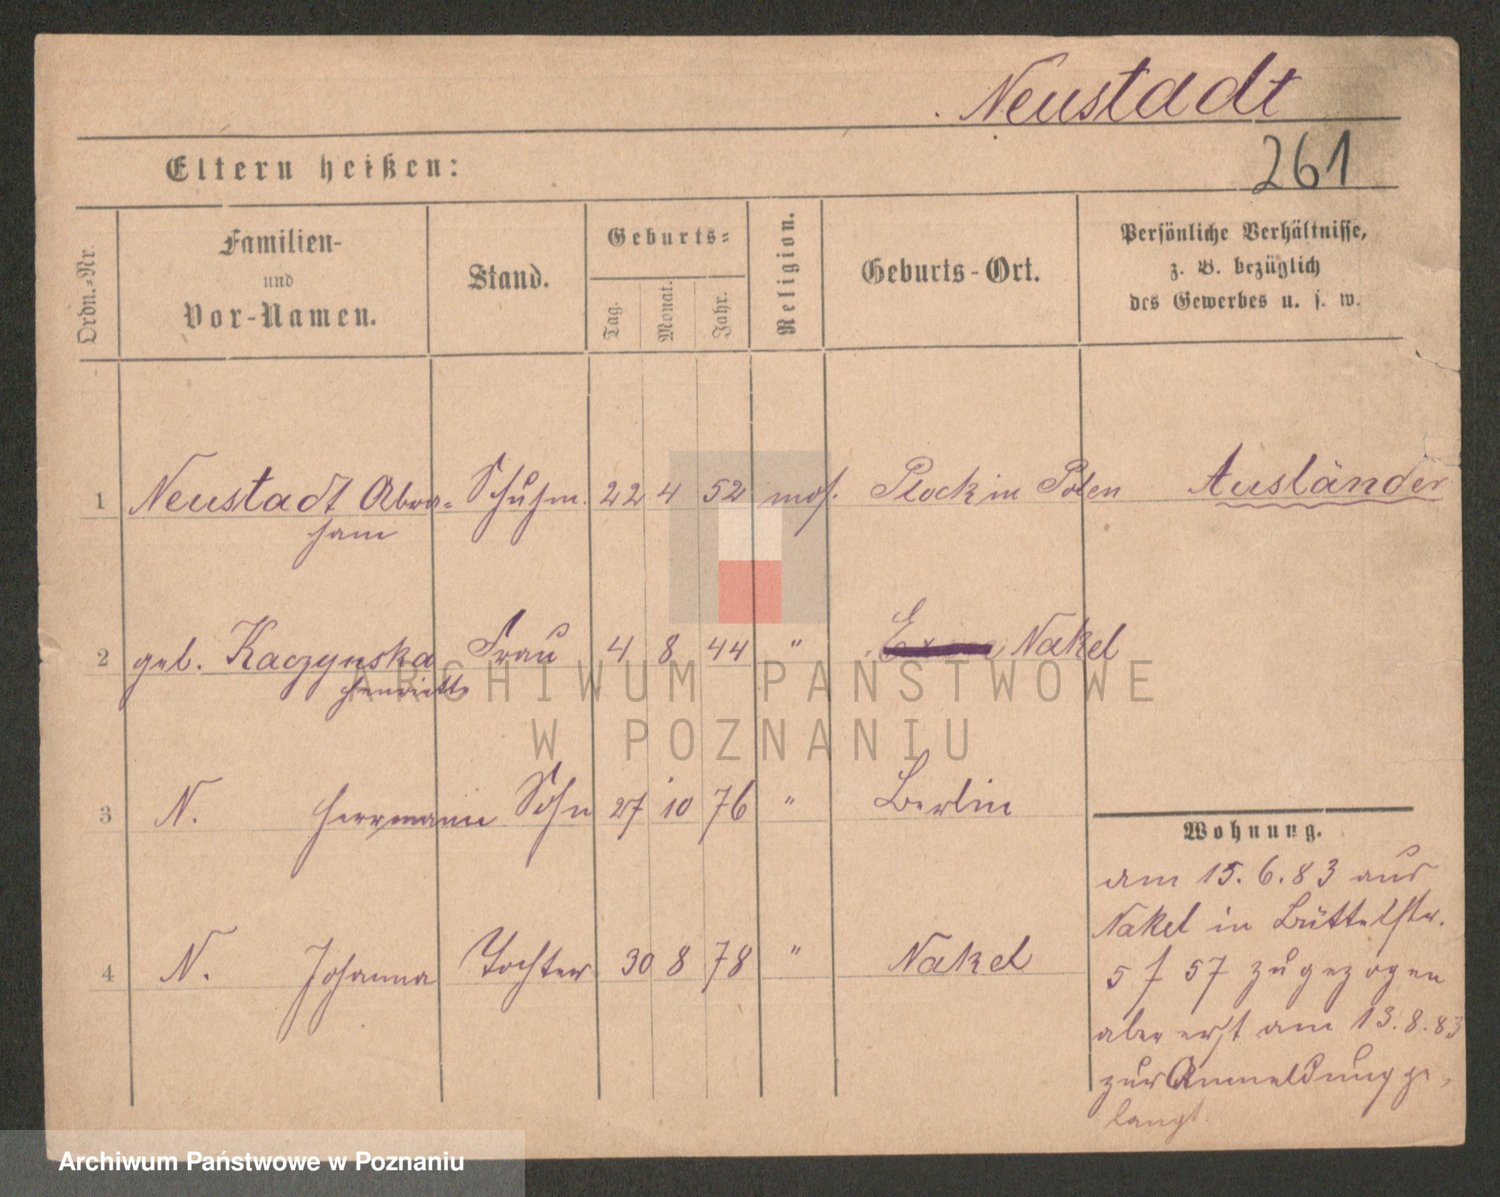 Neustadt
261
Eltern heißen:
Ordn.-Nr.
Familien-
und
Vor-Namen.
Stand.
Geburts-
Tag.
Monat.
Jahr.
Religion.
Geburts-Ort.
Persönliche Verhältnisse,
z. B. bezüglich
des Gewerbes u. s. w.
1 Neustadt Abra- Schuhm. 22 4 52 mos. Plock in Polen Ausländer
ham
2 geb. Kaczynska Frau 4 8 44 " Nakel
Henriette
3 N. Herrmann Sohn 27 10 76 " Berlin
4 N. Johanna Tochter 30 8 78 " Nakel
Wohnung.
am 15.6.83 aus
Nakel in Büttelstr.
5 f 57 zugezogen
aber erst am 13.8.83
zur Anmeldung ge-
langt.
ARCHIWUM PAŃSTWOWE
W POZNANIU
Archiwum Państwowe w Poznaniu